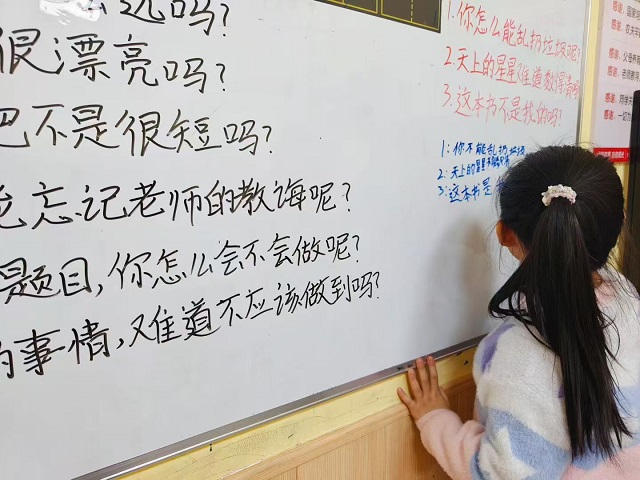 远吗?
很漂亮吗?
巴不是很短吗?
忘记老师的教诲呢?
题目,你怎么会不会做呢?
的事情,难道不应该做到吗?
1.你怎么能乱扔垃圾呢?
2天上的星星难道数得清吗
3.这本书不是我的吗?
1:你不能乱扔垃圾
2:天上的星星
3:这本书是
感谢:
感谢:
感谢:父母养
感谢:老师教
感谢:
感谢:一切